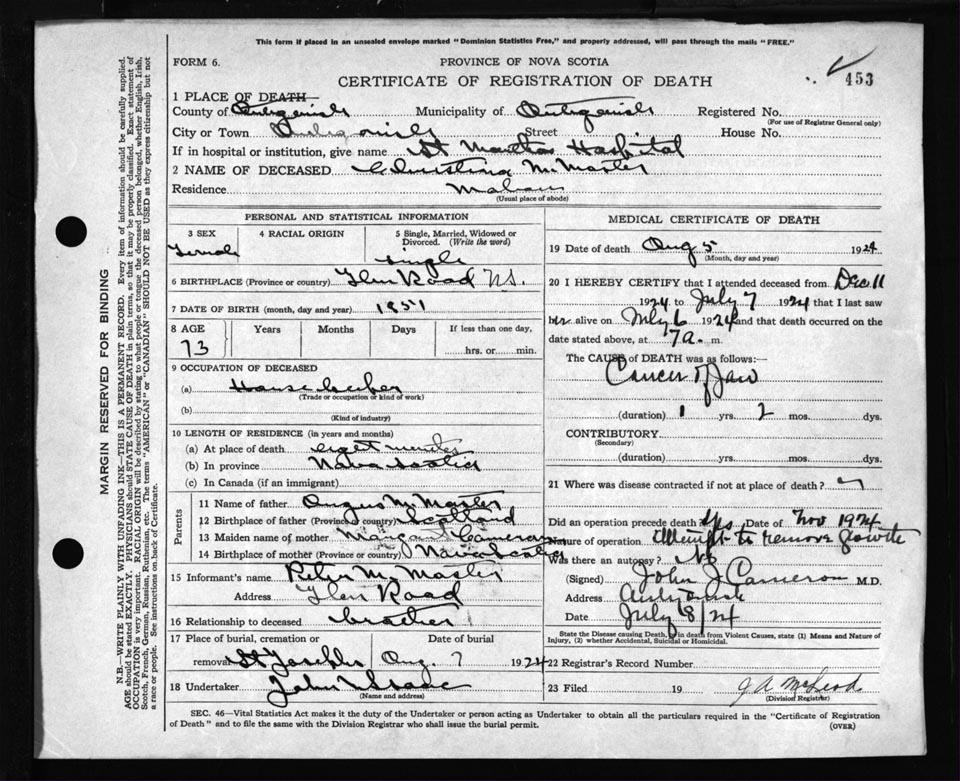 This form if placed in an unsealed envelope marked "Dominion Statistics Free," and properly addressed, will pass through the mails "FREE."
FORM 6.
PROVINCE OF NOVA SCOTIA
CERTIFICATE OF REGISTRATION OF DEATH
453
1 PLACE OF DEATH—
County of Antigonish Municipality of Antigonish Registered No.
(For use of Registrar General only)
City or Town Antigonish Street House No.
If in hospital or institution, give name St Marthas Hospital
2 NAME OF DECEASED Christina McMaster
Residence Mabou
(Usual place of abode)
PERSONAL AND STATISTICAL INFORMATION
3 SEX Female
4 RACIAL ORIGIN
5 Single, Married, Widowed or Divorced. (Write the word) Single
6 BIRTHPLACE (Province or country) Glen Road N.S.
7 DATE OF BIRTH (month, day and year) 1851
8 AGE 73 Years Months Days If less than one day, hrs. or min.
9 OCCUPATION OF DECEASED
(a) House keeper
(Trade or occupation or kind of work)
(b)
(Kind of industry)
10 LENGTH OF RESIDENCE (in years and months)
(a) At place of death eight months
(b) In province Nova Scotia
(c) In Canada (if an immigrant)
Parents
11 Name of father Angus McMaster
12 Birthplace of father (Province or country) Scotland
13 Maiden name of mother Margaret Cameron
14 Birthplace of mother (Province or country) Nova Scotia
15 Informant's name Peter McMaster
Address Glen Road
16 Relationship to deceased brother
17 Place of burial, cremation or removal St Josephs Date of burial Aug. 7 1924
18 Undertaker John
(Name and address)
MEDICAL CERTIFICATE OF DEATH
19 Date of death Aug 5 1924
(Month, day and year)
20 I HEREBY CERTIFY that I attended deceased from Dec 11
1924 to July 7 1924 that I last saw
her alive on July 6 1924 and that death occurred on the
date stated above, at 7 a. m.
The CAUSE of DEATH was as follows:—
Cancer of Jaw
(duration) 1 yrs. 2 mos. dys.
CONTRIBUTORY
(Secondary)
(duration) yrs. mos. dys.
21 Where was disease contracted if not at place of death?
Did an operation precede death Yes Date of Nov 1924
Nature of operation Attempt to remove growth
Was there an autopsy? No
(Signed) John J Cameron M.D.
Address Antigonish
Date July 8/24
State the Disease causing Death, or in deaths from Violent Causes, state (1) Means and Nature of Injury, (2) whether Accidental, Suicidal or Homicidal.
22 Registrar's Record Number
23 Filed 19 J A McLeod
(Division Registrar)
SEC. 46—Vital Statistics Act makes it the duty of the Undertaker or person acting as Undertaker to obtain all the particulars required in the "Certificate of Registration
of Death" and to file the same with the Division Registrar who shall issue the burial permit.
(OVER)
MARGIN RESERVED FOR BINDING
N.B.—WRITE PLAINLY WITH UNFADING INK—THIS IS A PERMANENT RECORD. Every item of information should be carefully supplied.
AGE should be stated EXACTLY. PHYSICIANS should STATE CAUSE OF DEATH in plain terms, so that it may be properly classified. Exact statement of
OCCUPATION is very important. RACIAL ORIGIN will be described by stating to what people or tongue the deceased person belonged, whether English, Irish,
Scotch, French, German, Russian, Ruthenian, etc. The terms "AMERICAN" or "CANADIAN" SHOULD NOT BE USED as they express citizenship but not
a race or people. See instructions on back of Certificate.